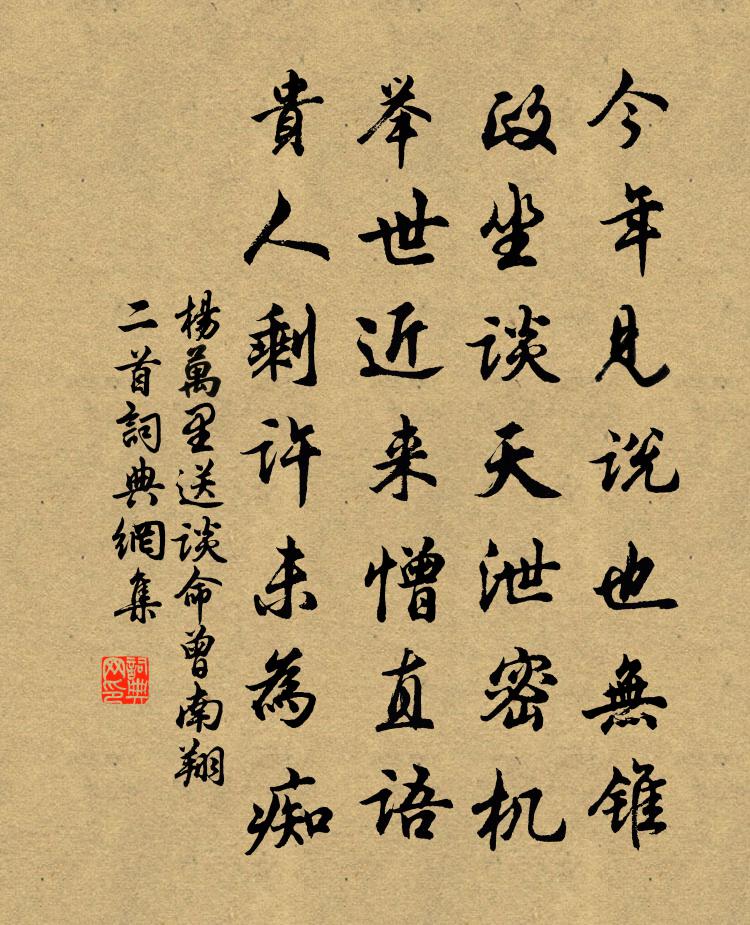 今年見説也無錐
政坐談天泄密机
举世近来憎直語
貴人剩許未為痴
楊萬里送談命曾南翔
二首詞典網集
詞典网印